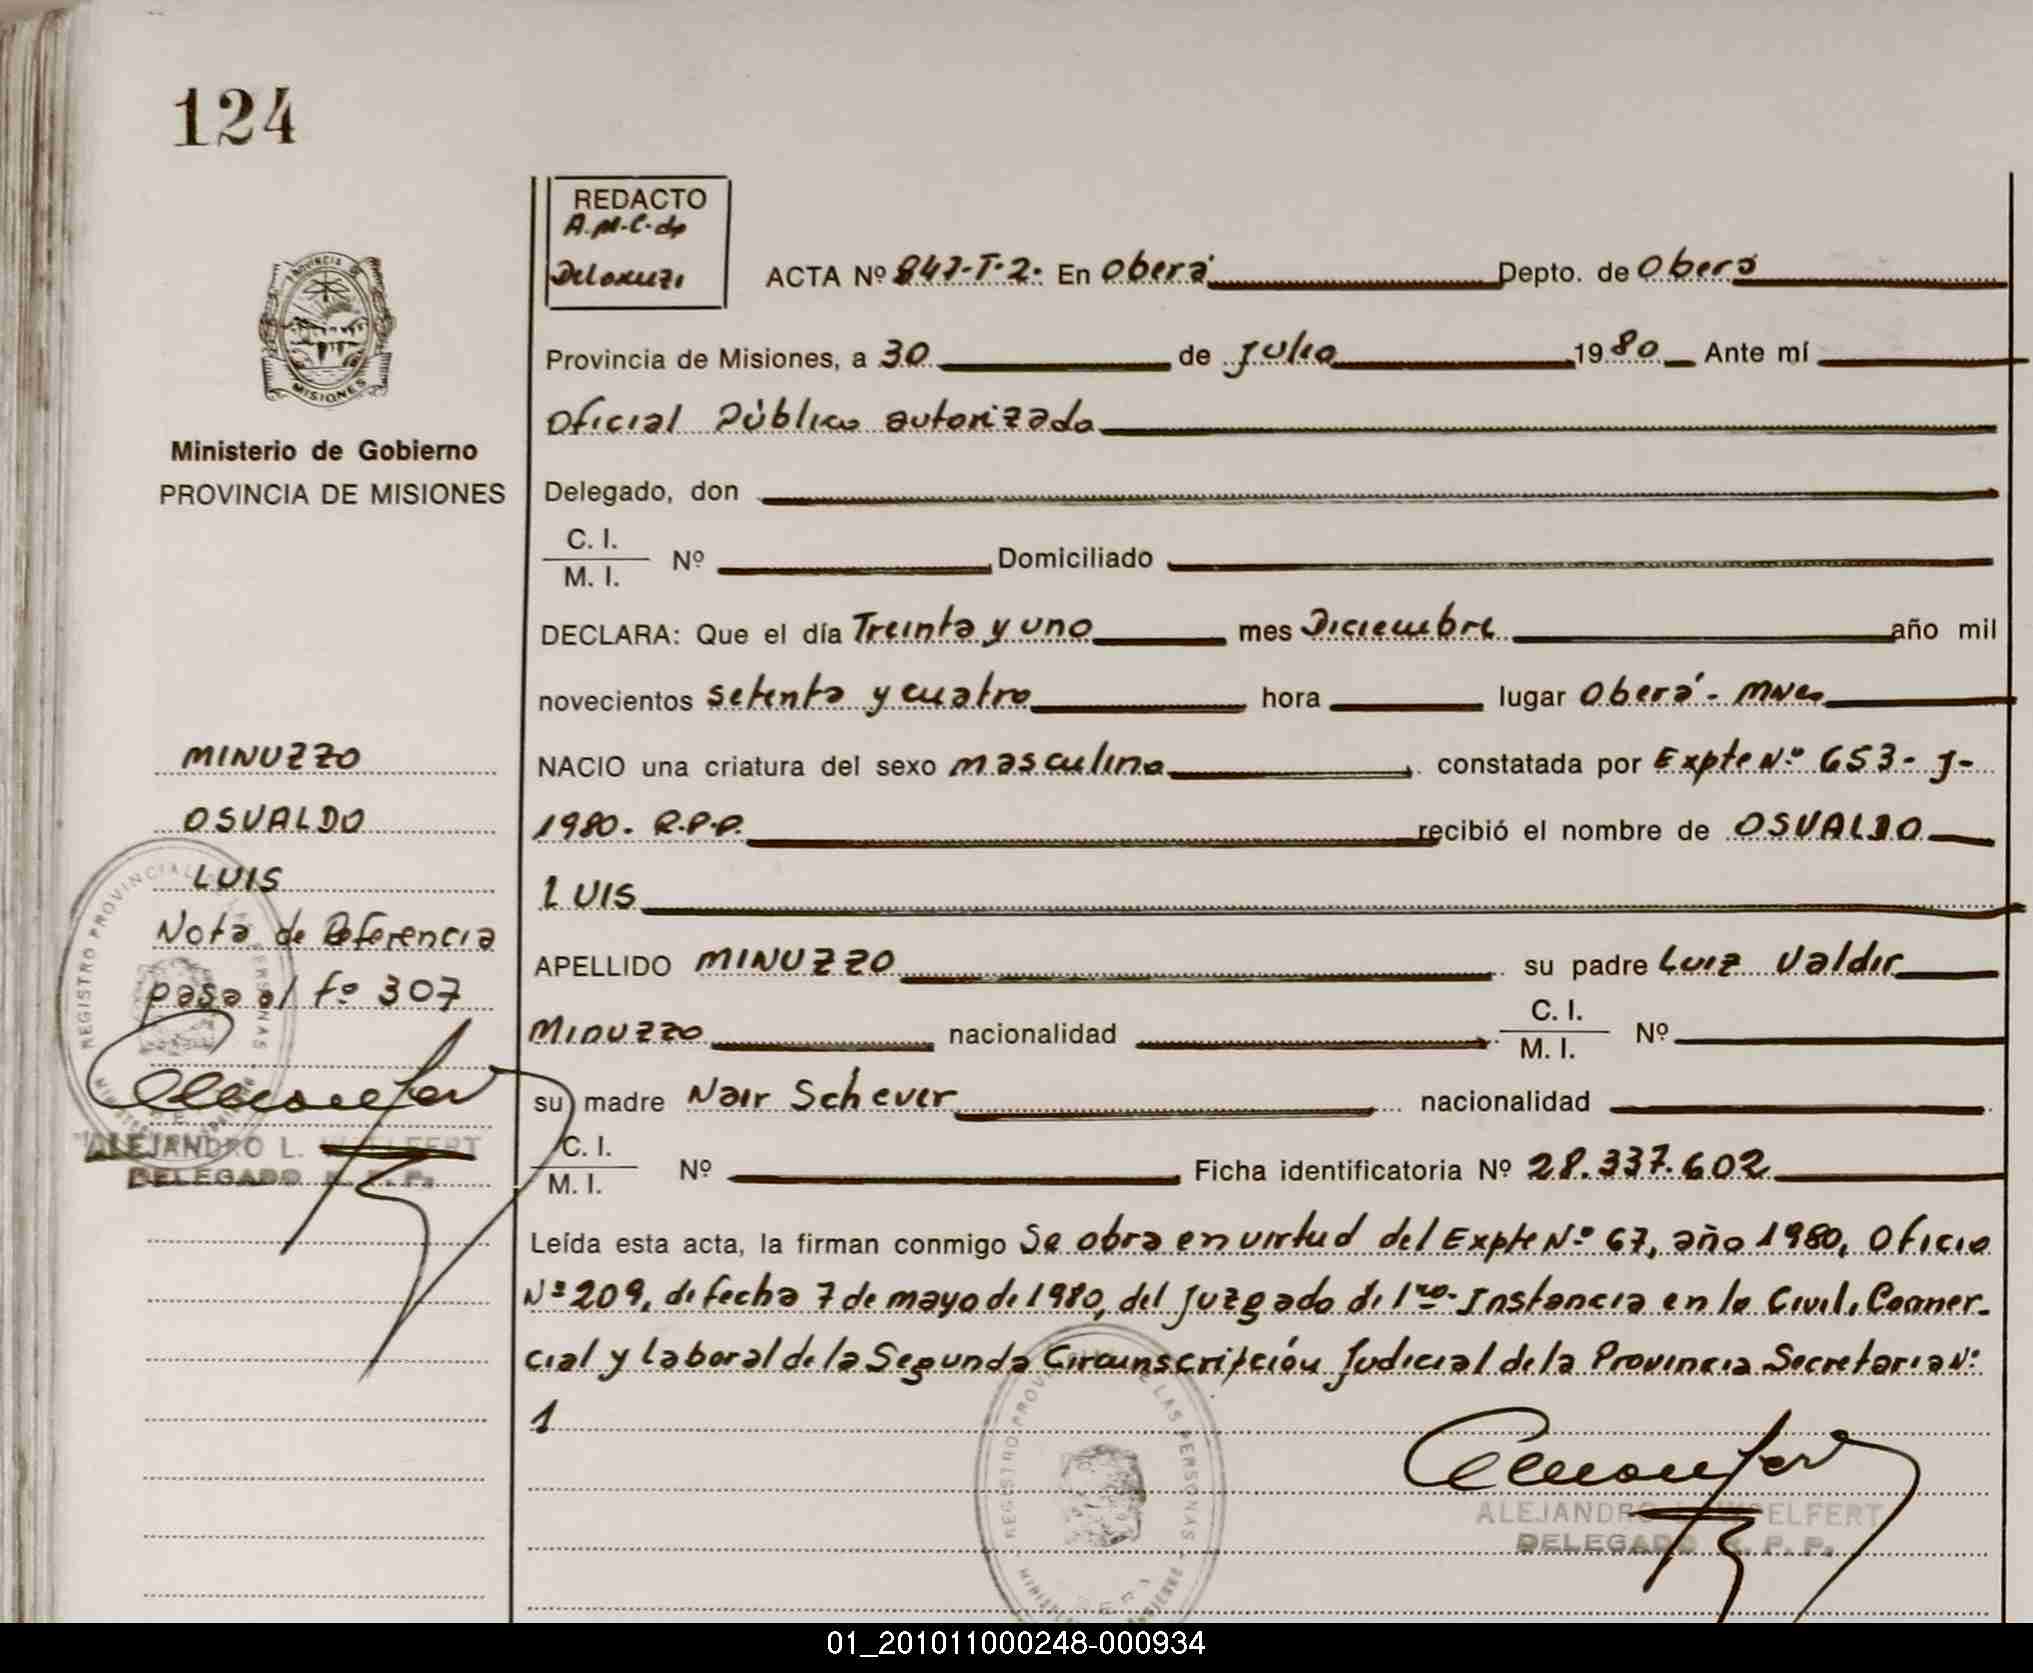 124
REDACTO
A.M.C. de
ACTA Nº 847-T-2. En Oberá Depto. de Oberá
Provincia de Misiones, a 30 de julio 1980 Ante mí
Oficial Público autorizado
Ministerio de Gobierno
PROVINCIA DE MISIONES
Delegado, don
C. I.
M. I. Nº Domiciliado
DECLARA: Que el día Treinta y uno mes Diciembre año mil
novecientos setenta y cuatro hora lugar Oberá - Mnes
MINUZZO
NACIO una criatura del sexo masculino constatada por Expte Nº 653-J-
OSVALDO
1980. R.P.P. recibió el nombre de OSVALDO
LUIS
LUIS
Nota de Referencia
pasa al fº 307
APELLIDO MINUZZO su padre Luiz Valdir
Minuzzo nacionalidad C. I.
M. I. Nº
su madre Nair Schever nacionalidad
ALEJANDRO L. WOELFERT
DELEGADO R. P. P.
C. I.
M. I. Nº Ficha identificatoria Nº 28.337.602
Leída esta acta, la firman conmigo Se obra en virtud del Expte Nº 67, año 1980, Oficio
Nº 209, de fecha 7 de mayo de 1980, del Juzgado de 1ra. Instancia en lo Civil, Comer-
cial y Laboral de la Segunda Circunscripción Judicial de la Provincia Secretaria Nº
1
REGISTRO PROVINCIAL DE LAS PERSONAS
ALEJANDRO L. WOELFERT
DELEGADO R. P. P.
01_201011000248-000934